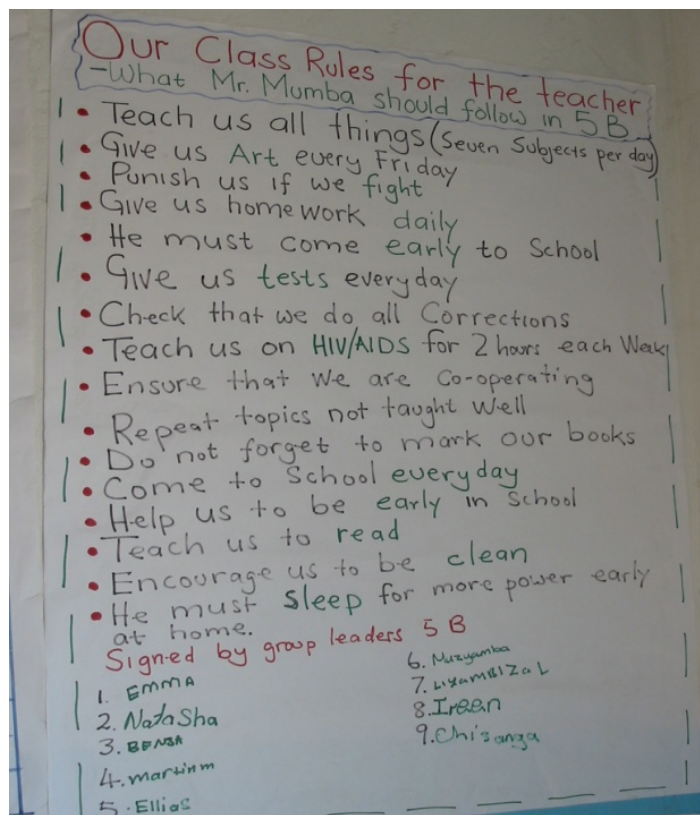 Our Class Rules for the teacher
-What Mr. Mumba should follow in 5 B
• Teach us all things (Seven Subjects per day)
• Give us Art every Friday
• Punish us if we fight
• Give us homework daily
• He must come early to School
• Give us tests everyday
• Check that we do all Corrections
• Teach us on HIV/AIDS for 2 hours each Weak
• Ensure that we are Co-operating
• Repeat topics not taught well
• Do not forget to mark our books
• Come to School everyday
• Help us to be early in School
• Teach us to read
• Encourage us to be clean
• He must Sleep for more power early
at home.
Signed by group leaders 5 B
1. EMMA
2. NataSha
3. BENSA
4. martin m
5. Ellias
6. Muzyamba
7.
8. Ireen
9. Chisanga